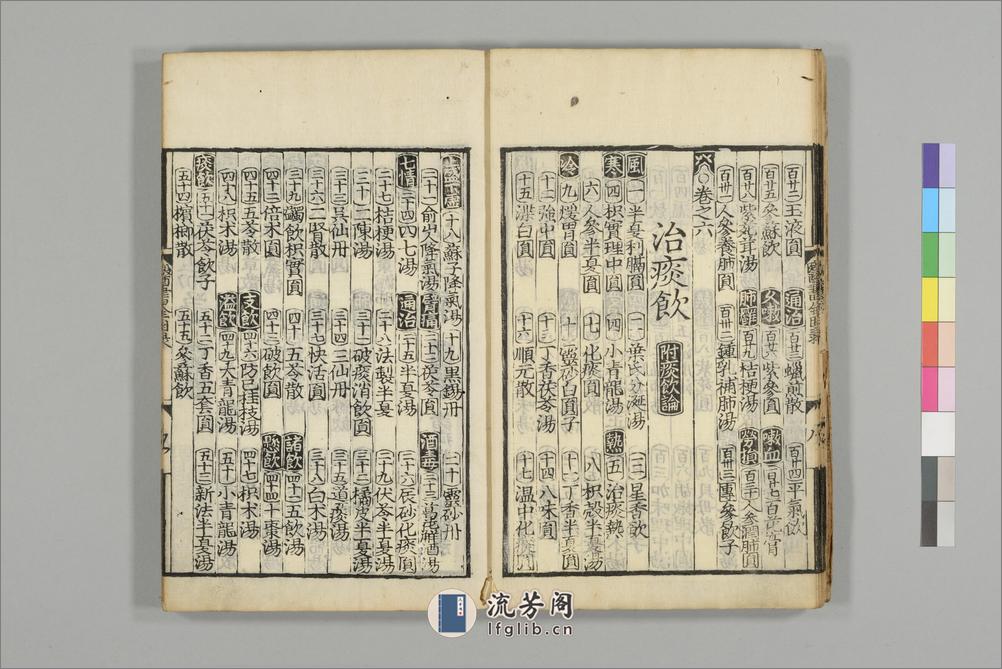 百廿二玉液圓 通治 百廿三蠟煎散 百廿四平氣飲
百廿五參蘇飲 久嗽 百廿六紫參圓 嗽血 百廿七百花膏
百廿八紫菀茸湯 肺痿 百廿九桔梗湯 勞損 百三十人參潤肺圓
百卅一人參養肺圓 百卅二鍾乳補肺湯 百卅三團參飲子
卷之六
治痰飲 附痰飲論
風 一半夏利膈圓 二葉氏分涎湯 三星香飲
寒 四枳實理中圓 四小青龍湯 熱 五治痰熱
六人參半夏圓 七化痰圓 八枳殼半夏湯
冷 九煖胃圓 十靈砂白圓子 十一丁香半夏圓
十二強中圓 十三丁香茯苓湯 十四八味圓
十五滌白圓 十六順元散 十七温中化痰圓
上盛下虛 十八蘇子降氣湯 十九黑錫丹 二十靈砂丹
二十一俞山降氣湯 二十二茯苓圓 酒毒 二十三葛花解酲湯
七情 二十四四七湯 通治 二十五半夏湯 二十六辰砂化痰圓
二十七桔梗湯 二十八法製半夏 二十九伏苓半夏湯
三十一二陳湯 三十二破痰消飲圓 三十三橘皮半夏湯
三十三吳仙丹 三十四三仙丹 三十五導痰湯
三十六二賢散 三十七快活圓 三十八白术湯
三十九蠲飲枳實圓 四十五苓散 諸飲 四十一五飲湯
四十二倍术圓 四十三破飲圓 懸飲 四十四十棗湯
四十五五苓散 支飲 四十六防已桂枝湯 四十七枳术湯
四十八枳术湯 溢飲 四十九大青龍湯 五十小青龍湯
痰飲 五十一茯苓飲子 五十二丁香五套圓 五十三新法半夏湯
五十四檳榔散 五十五參蘇飲
流芳阁
lfglib.cn